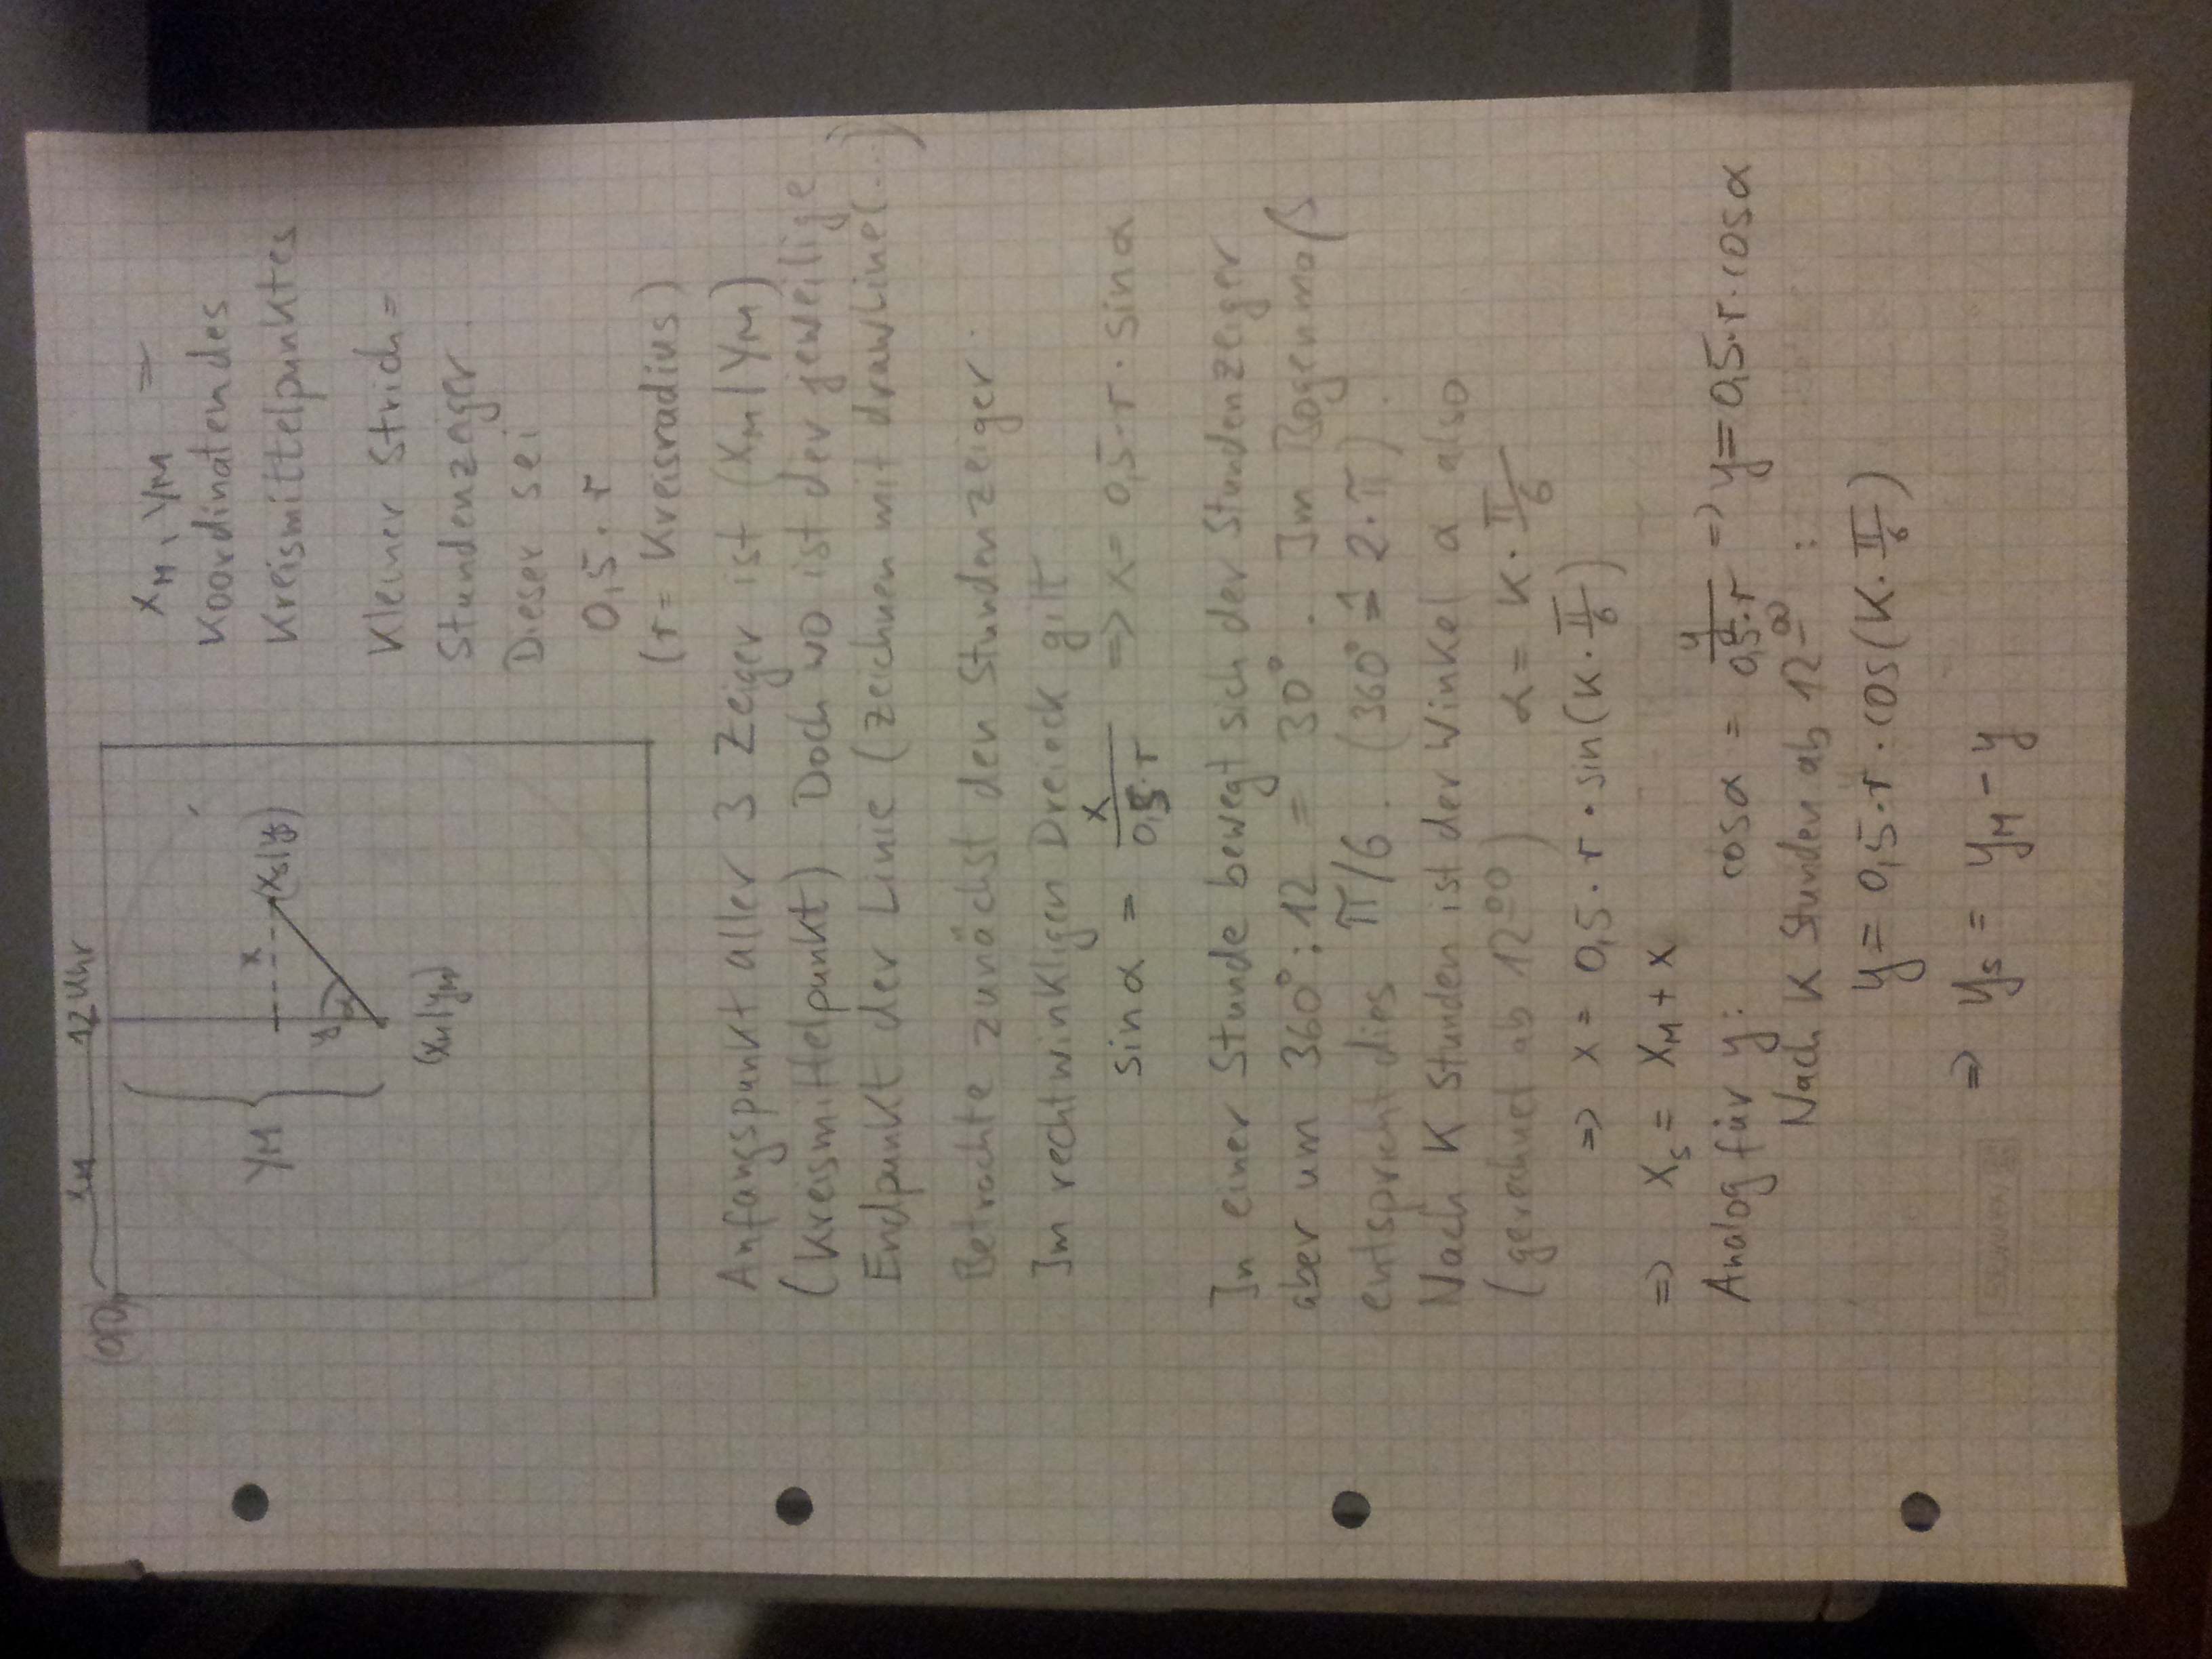 x_M
12 Uhr
(0|0)
y_M
x
(x_s|y_s)
y
α
(x_M|y_M)
x_M, y_M =
Koordinaten des
Kreismittelpunktes
Kleiner Strich =
Stundenzeiger.
Dieser sei
0,5 · r
(r = Kreisradius)
Anfangspunkt aller 3 Zeiger ist (x_M | y_M)
(Kreismittelpunkt). Doch wo ist der jeweilige
Endpunkt der Linie (zeichnen mit drawLine(...)
Betrachte zunächst den Stundenzeiger.
Im rechtwinkligen Dreieck gilt
sin α = x / (0,5 · r) => x = 0,5 · r · sin α
In einer Stunde bewegt sich der Stundenzeiger
aber um 360° : 12 = 30°. Im Bogenmaß
entspricht dies π/6. (360° ≙ 2 · π).
Nach K Stunden ist der Winkel α also
(gerechnet ab 12⁰⁰) α = K · π/6
=> x = 0,5 · r · sin(K · π/6)
=> x_s = x_M + x
Analog für y: cos α = y / (0,5 · r) => y = 0,5 · r · cos α
Nach K Stunden ab 12⁰⁰ :
y = 0,5 · r · cos(K · π/6)
=> y_s = y_M - y